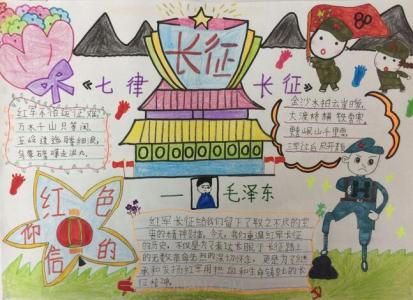 长征
《七律 长征》
80
红军不怕远征难，
万水千山只等闲。
五岭逶迤腾细浪，
乌蒙磅礴走泥丸。
金沙水拍云崖暖，
大渡桥横铁索寒。
更喜岷山千里雪，
三军过后尽开颜。
——毛泽东
红色
信仰的
红军长征给我们留下了取之不尽的宝
贵的精神财富。今天，我们重温红军长征
的历史，不仅是为了表达长眠于长征路上
的无数革命先烈的深切怀念，更是为了继
承和发扬红军用热血和生命铸就的长
征精神。